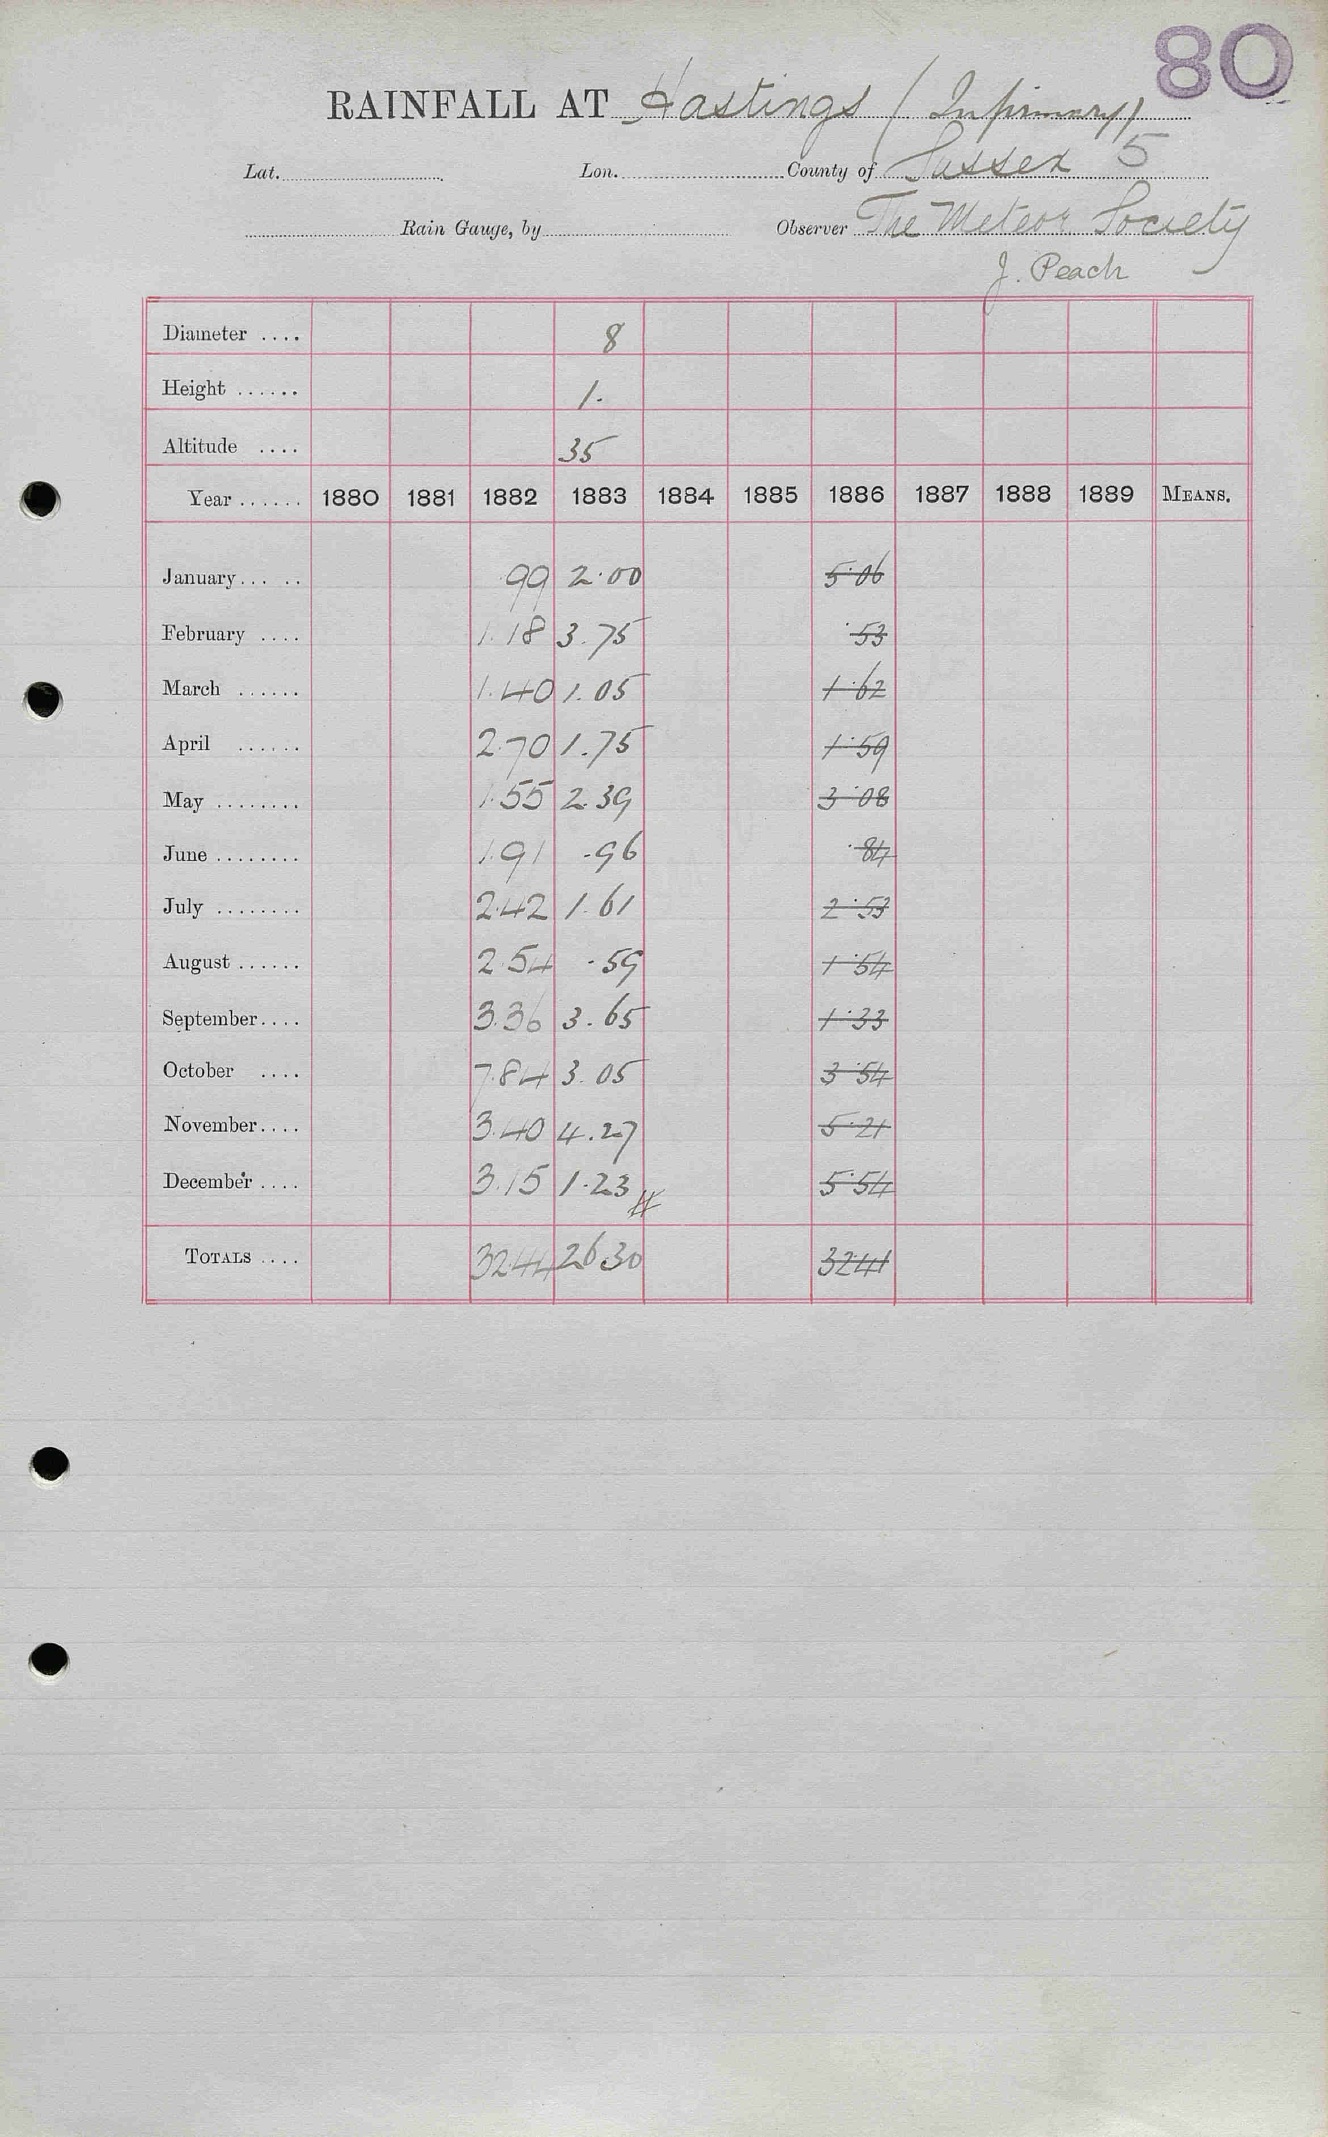 80
RAINFALL AT Hastings (Infirmary)
Lat. Lon. County of Sussex 5
Rain Gauge, by Observer The Meteor. Society
J. Peach
Diameter .... 8
Height ...... 1.
Altitude .... 35
Year ...... 1880 1881 1882 1883 1884 1885 1886 1887 1888 1889 MEANS.
January ... .. .99 2.00 5.06
February .... 1.18 3.75 .53
March ...... 1.40 1.05 1.62
April ...... 2.70 1.75 1.59
May ........ 1.55 2.39 3.08
June ........ 1.91 .96 .84
July ........ 2.42 1.61 2.53
August ...... 2.54 .59 1.54
September .... 3.36 3.65 1.33
October .... 7.84 3.05 3.54
November .... 3.40 4.27 5.21
December .... 3.15 1.23 5.54
TOTALS .... 32.44 26.30 32.41